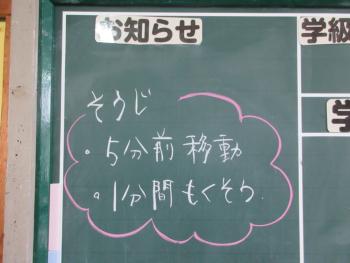 お知らせ
学級
学
そうじ
・5分前移動
・1分間もくそう